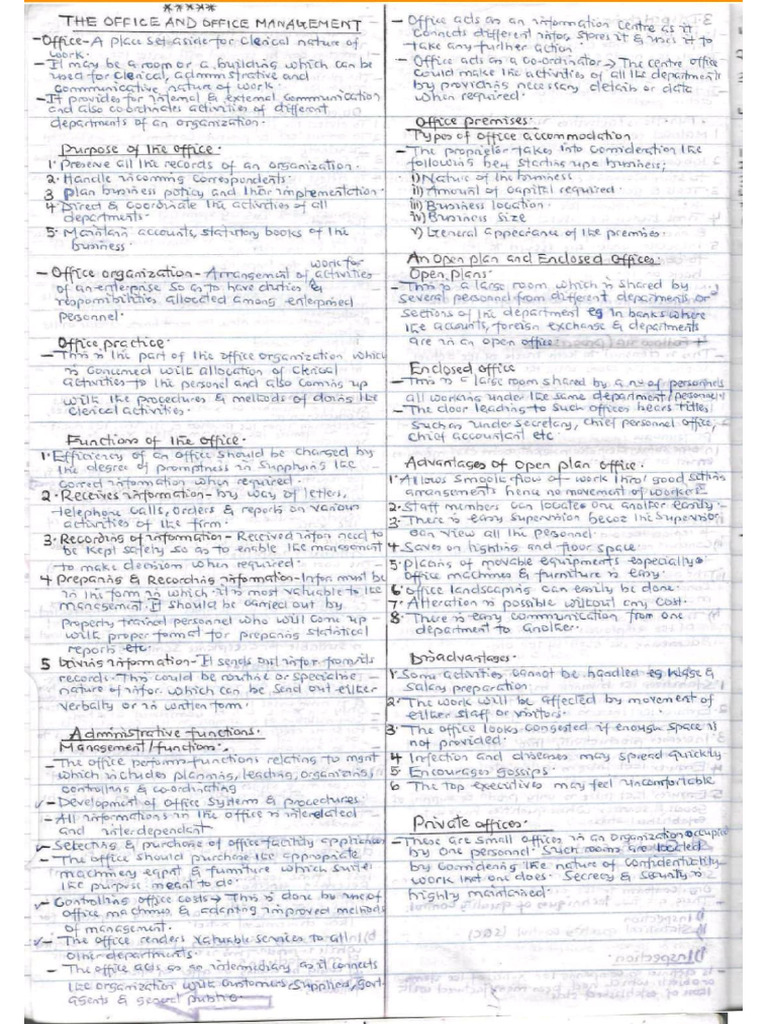 *****
THE OFFICE AND OFFICE MANAGEMENT
- Office - A place set aside for clerical nature of
work.
- It may be a room or a building which can be
used for clerical, administrative and
communicative nature of work.
- It provides for internal & external communication
and also coordinates activities of different
departments of an organization.
Purpose of the office.
1. Preserve all the records of an organization.
2. Handle incoming correspondents.
3 plan business policy and their implementation.
4 Direct & Coordinate the activities of all
departments.
5. Maintain accounts, statutory books of the
business.
work for
- Office organization - Arrangement of activities
of an enterprise so as to have duties &
responsibilities allocated among enterprised
personnel.
Office practice.
- This is the part of the office organization which
is concerned with allocation of clerical
activities to the personel and also coming up
with the procedures & methods of doing the
clerical activities.
Functions of the office.
1. Efficiency of an office should be charged by
the degree of promptness in supplying the
correct information when required.
2. Receives information - by way of letters,
telephone calls, orders & reports on various
activities of the firm.
3. Recording of information - Received infor need to
be kept safely so as to enable the management
to make decision when required.
4 Preparing & Recording information - Infor must be
in the form in which it is most valuable to the
management. It should be carried out by
property trained personnel who will come up
with proper format for preparing statistical
reports etc.
5 Giving information - It sends out infor from its
records. This could be routine or specialise
nature of infor. which can be send out either
verbally or in written form.
Administrative functions.
Management/functions.
- The office performs functions relating to mgnt
which includes planning, leading, organizing,
controlling & co-ordinating
✓ - Development of office system & procedures.
- All informations in the office is interelated
and interdependant
✓ Selecting & purchase of office facility appliances
- The office should purchase the appropriate
machinery eqpnt & furniture which suites
the purpose meant to do.
✓ Controlling office costs → This is done by use of
office machines & adapting improved methods
of management.
✓ - The office renders valuable services to all
other departments.
- The office acts as an intermidiary as it connects
the organization with customers, supplied, govt
agents & general public.
- Office acts as an information centre as it
connects different infor, stores it & uses it to
take any further action.
- Office acts as a co-ordinator → The centre office
could make the activities of all the departments
by providing necessary details or data
when required.
Office premises.
Types of office accommodation
- The proprietor takes into consideration the
following b4 starting up a business;
i) Nature of the business
ii) Amount of capital required.
iii) Business location.
iv) Business size
v) General appearance of the premises.
An open plan and Enclosed offices.
Open plans.
- This is a large room which is shared by
several personnel from different departments or
sections of the department eg In banks where
the accounts, foreign exchange & departments
are in an open office.
Enclosed office
- This is a large room shared by a no of personnels
all working under the same department/personnel
- The door leading to such offices bears titles
such as under secretary, chief personnel office,
chief accountant etc.
Advantages of Open plan office.
1. Allows smooth flow of work thro' good setting
arrangements hence no movement of workers
2. Staff members can locate one another easily.
3. There is easy supervision becoz the supervisor
can view all the personnel.
4 Saves on lighting and floor space.
5. Placing of movable equipments especially
office machines & furniture is easy.
6. office landscaping can easily be done.
7. Alteration is possible without any cost.
8. There is easy communication from one
department to another.
Disadvantages.
1. Some activities cannot be handled eg wage &
salary preparation.
2. The work will be affected by movement of
either staff or visitors.
3. The office looks congested if enough space is
not provided.
4 Infection and diseases may spread quickly
5. Encourages gossips.
6 The top executives may feel uncomfortable
Private offices.
- These are small offices in an organization occupied
by one personnel. Such rooms are located
by considering the nature of confidentiality
work that one does. Secrecy & security is
highly maintained.